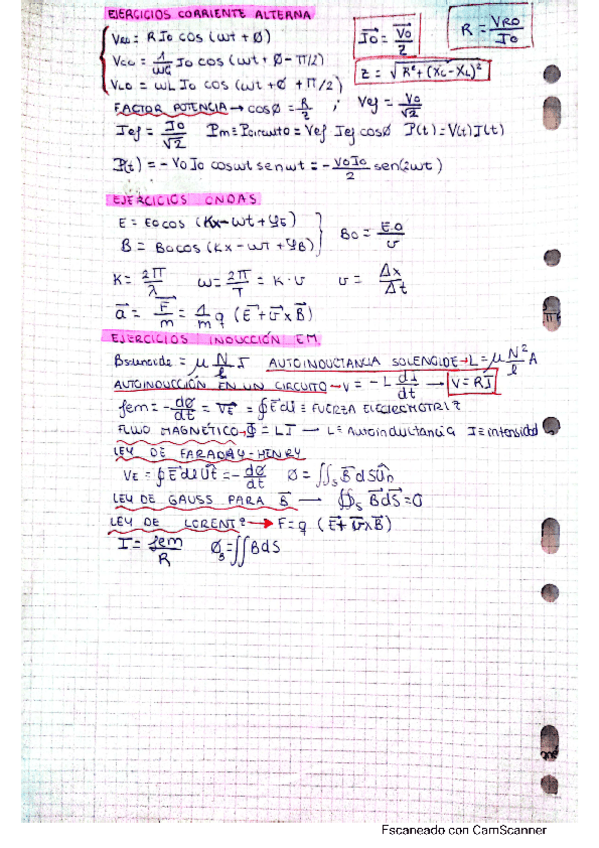 EJERCICIOS CORRIENTE ALTERNA
VRO = R IO cos (ωt + Ø)
VCO = 1/ωC IO cos (ωt + Ø - π/2)
VLO = ωL IO cos (ωt + Ø + π/2)
IO = VO/Z
R = VRO/IO
Z = √R²+(XC-XL)²
FACTOR POTENCIA → cosØ = R/Z ; Vef = VO/√2
Ief = IO/√2 Pm ≡ Pcircuito = Vef Ief cosØ P(t) = V(t) I(t)
P(t) = - VO IO cosωt senωt = - VOIO/2 sen(2ωt)
EJERCICIOS ONDAS
E = EO cos (Kx - ωt + φE)
B = BO cos (Kx - ωt + φB)
BO = EO/v
K = 2π/λ ω = 2π/T = K·v v = Δx/Δt
a = F/m = 1/m q (E + v x B)
EJERCICIOS INDUCCIÓN EM
Bsolenoide = μ N/l I AUTOINDUCTANCIA SOLENOIDE → L = μ N²/l A
AUTOINDUCCIÓN EN UN CIRCUITO → V = - L dI/dt → V = RI
fem = - dØ/dt = VE = ∮ E dl ≡ FUERZA ELECTROMOTRIZ
FLUJO MAGNÉTICO → Φ = LI → L ≡ Autoinductancia I ≡ intensidad
LEY DE FARADAY-HENRY
VE = ∮ E dl Ut = - dØ/dt Ø = ∬s B dS Un
LEY DE GAUSS PARA B → ∯s B dS = 0
LEY DE LORENTZ → F = q (E + v x B)
I = fem/R ØB = ∬ B dS
Escaneado con CamScanner